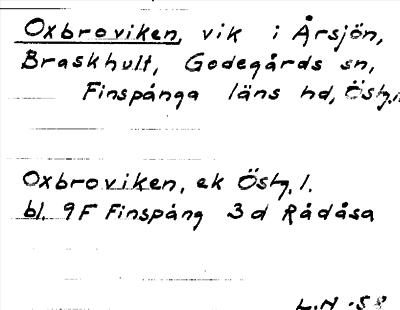 Oxbroviken, vik i Årsjön,
Braskhult, Godegårds sn,
Finspånga läns hd, Östg.l.
Oxbroviken, ek Östg. l.
bl. 9F Finspång 3d Rådåsa
L.N -58